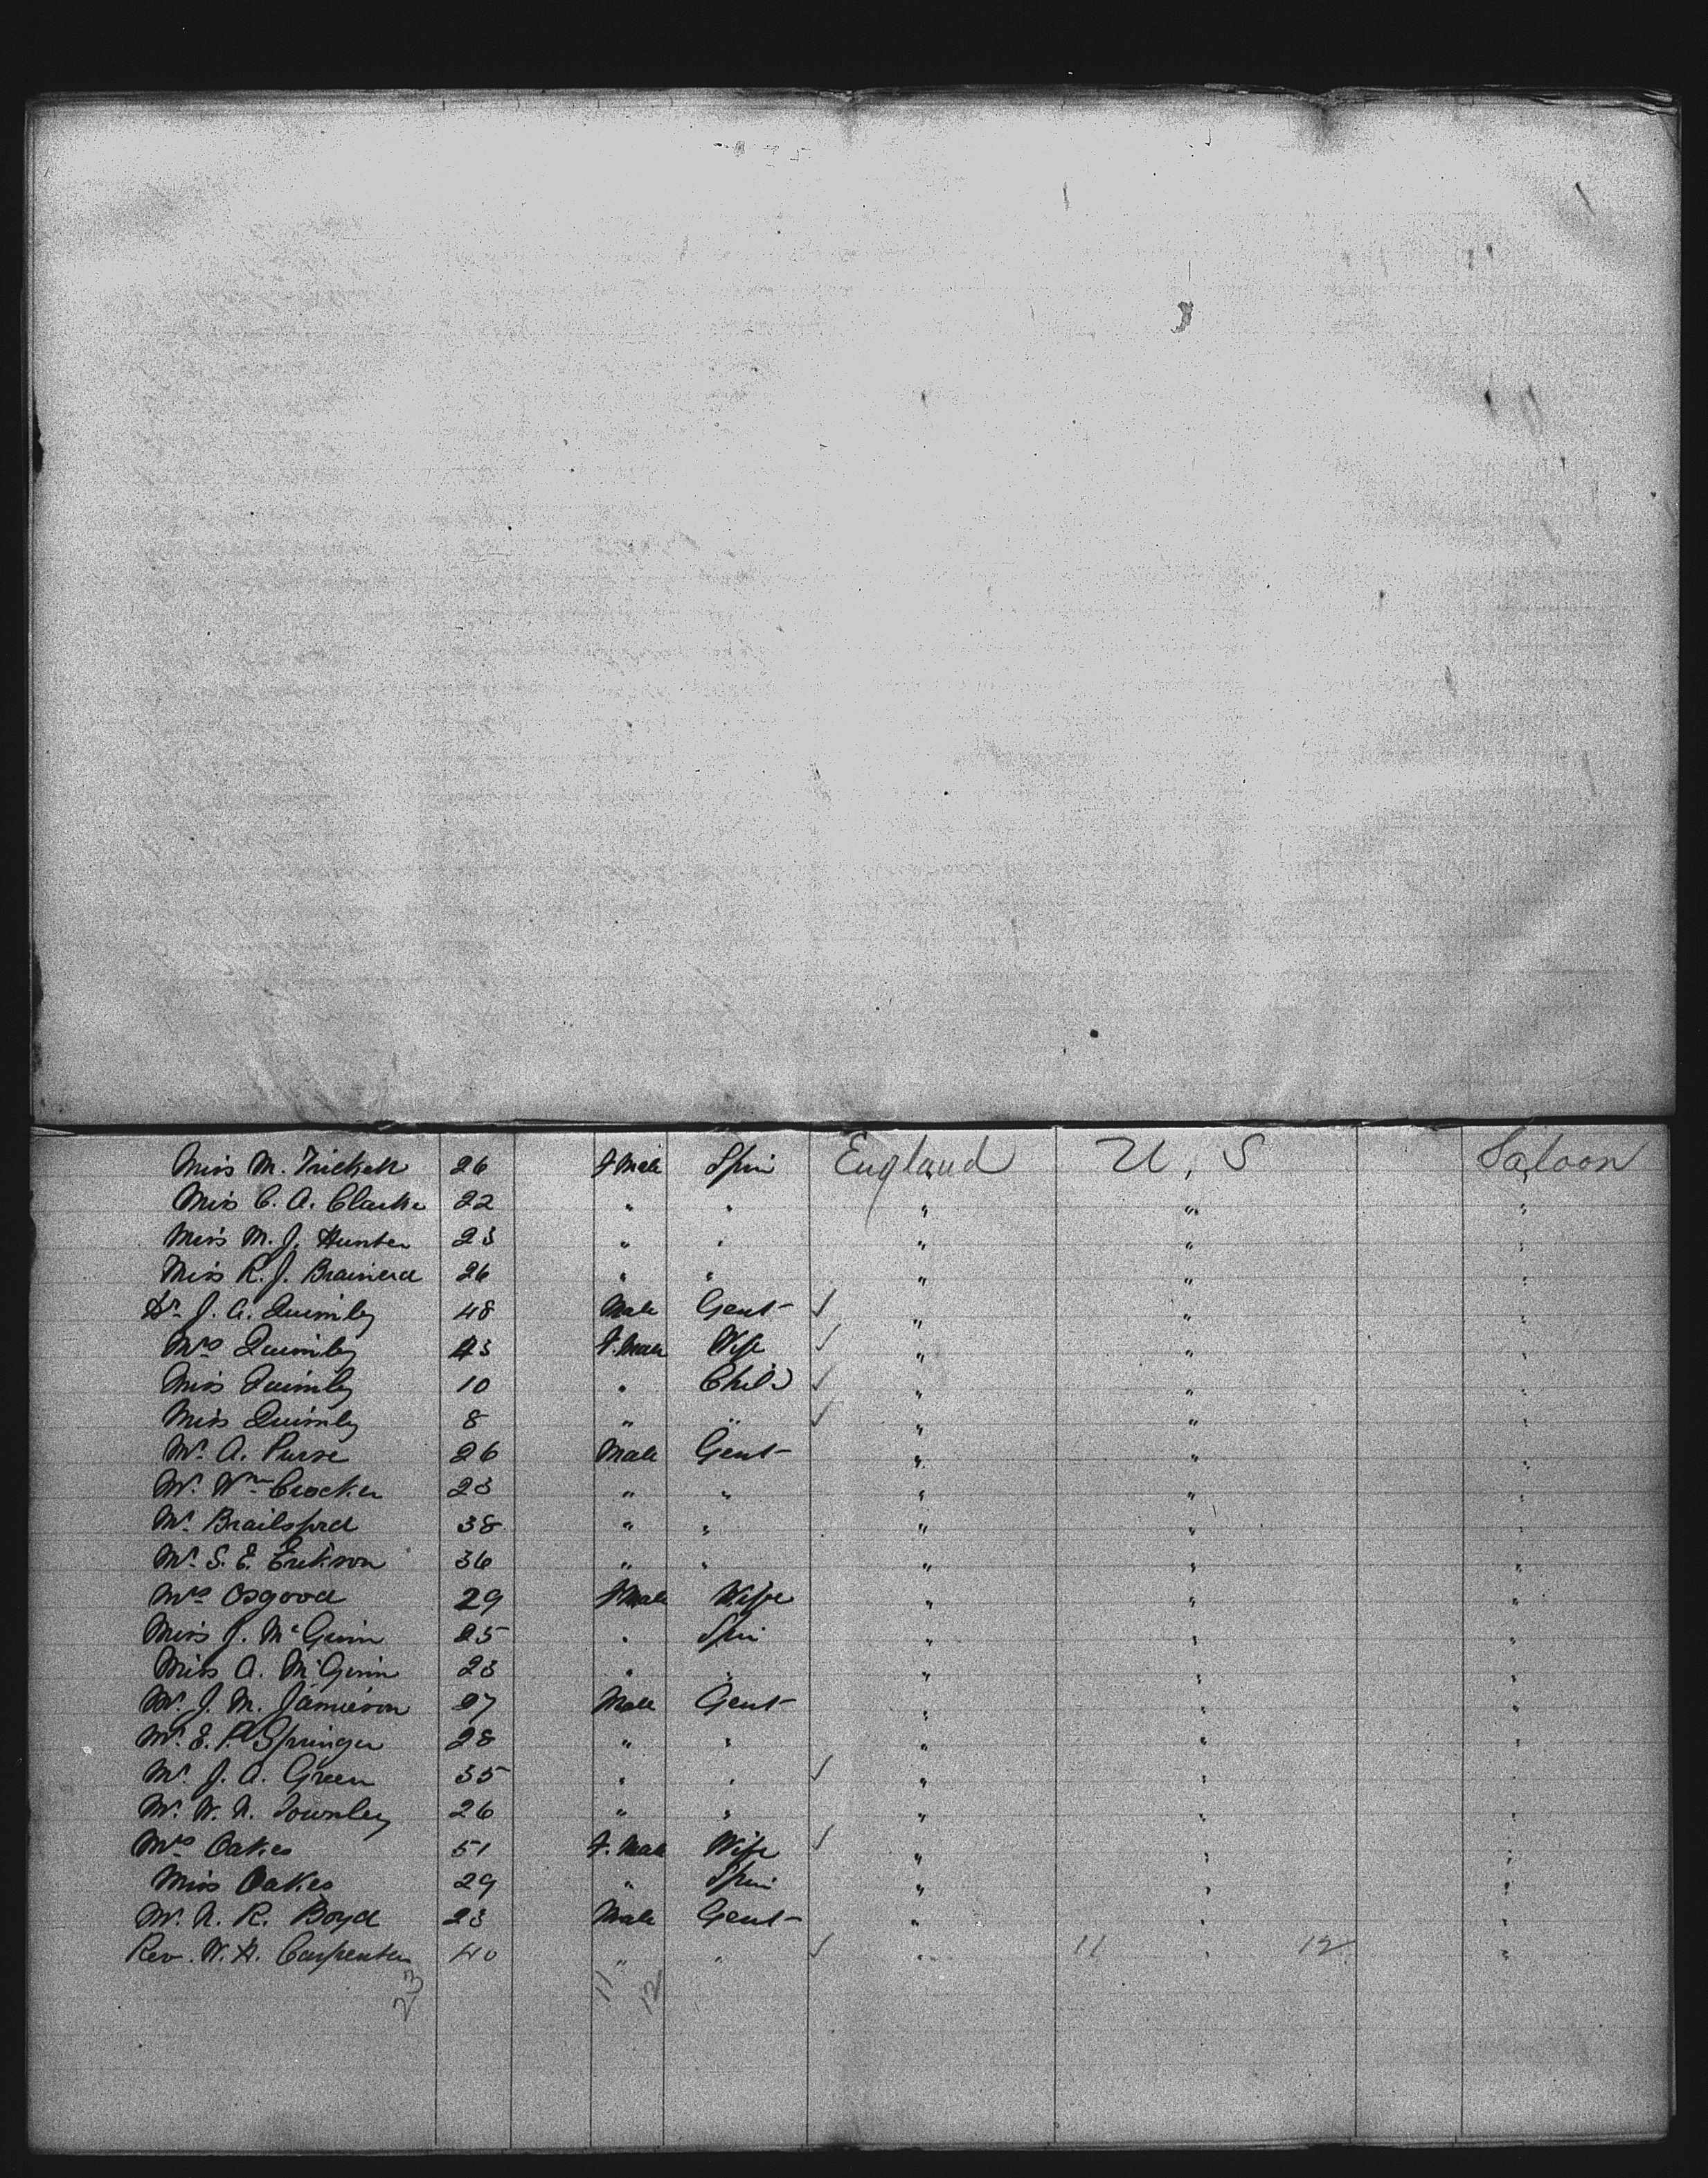 Miss M. Trickett 26 F.Male Spin England U, S Saloon
Miss C. A. Clarke 22 " " " " "
Miss M. J. Hunter 23 " " " " "
Miss R. J. Brainerd 26 " " " " "
Dr J. A. Quimby 48 Male Gent ✓ " " "
Mrs Quimby 43 F.Male Wife ✓ " " "
Miss Quimby 10 " Child ✓ " " "
Miss Quimby 8 " " ✓ " " "
Mr A. Purse 26 Male Gent " " "
Mr Wm Crocker 23 " " " " "
Mr Brailsford 38 " " " " "
Mr S. E. Erikson 36 " " " " "
Mrs Osgood 29 F.Male Wife " " "
Miss J. McGinn 25 " Spin " " "
Miss A. McGinn 23 " " " " "
Mr J. M. Jamieson 27 Male Gent " " "
Mr E. P. Springer 28 " " " " "
Mr J. A. Green 35 " " ✓ " " "
Mr W. N. Townley 26 " " " " "
Mrs Oakes 51 F.Male Wife ✓ " " "
Miss Oakes 29 " Spin " " "
Mr N. R. Boyd 23 Male Gent " " "
Rev. W. H. Carpenter 40 " " ✓ " 11 " 12 "
23 11 12